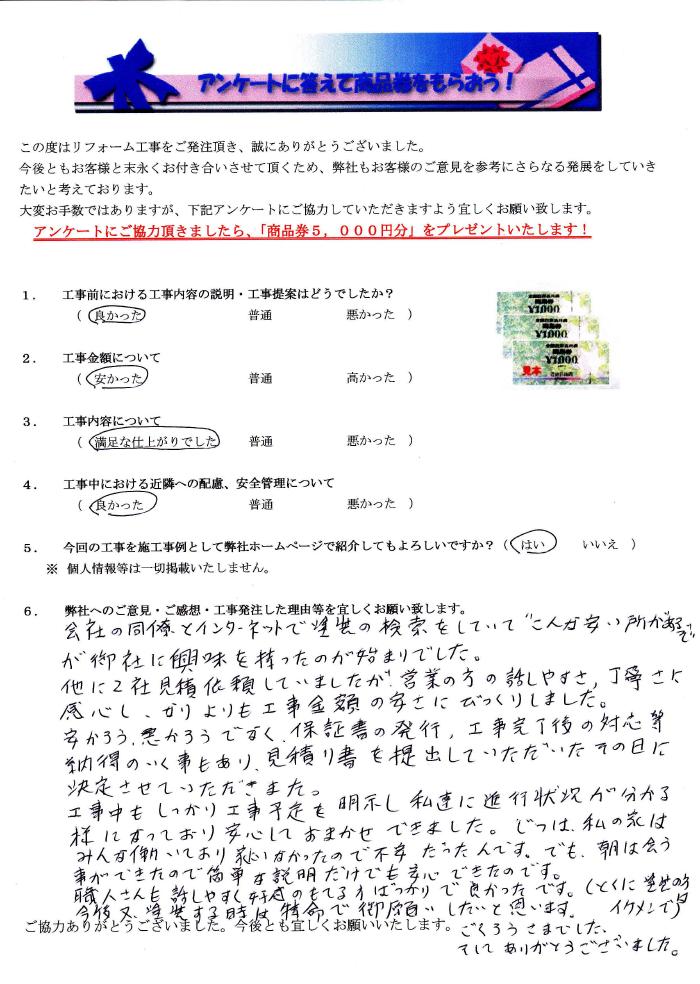 アンケートに答えて商品券をもらおう！
この度はリフォーム工事をご発注頂き、誠にありがとうございました。
今後ともお客様と末永くお付き合いさせて頂くため、弊社もお客様のご意見を参考にさらなる発展をしていき
たいと考えております。
大変お手数ではありますが、下記アンケートにご協力していただきますよう宜しくお願い致します。
アンケートにご協力頂きましたら、「商品券５，０００円分」をプレゼントいたします！
１． 工事前における工事内容の説明・工事提案はどうでしたか？
（ 良かった 普通 悪かった ）
商品券
¥1,000
商品券
¥1,000
商品券
¥1,000
見本
２． 工事金額について
（ 安かった 普通 高かった ）
３． 工事内容について
（ 満足な仕上がりでした 普通 悪かった ）
４． 工事中における近隣への配慮、安全管理について
（ 良かった 普通 悪かった ）
５． 今回の工事を施工事例として弊社ホームページで紹介してもよろしいですか？（ はい いいえ ）
※ 個人情報等は一切掲載いたしません。
６． 弊社へのご意見・ご感想・工事発注した理由等を宜しくお願い致します。
会社の同僚とインターネットで塗装の検索をしていて"こんな安い所がある
が御社に興味を持ったのが始まりでした。
他に2社見積依頼していましたが、営業の方の話しやすさ、丁寧さに
感心し、なによりも工事金額の安さにびっくりしました。
安かろう、悪かろうでなく、保証書の発行、工事完了後の対応等
納得のいく事もあり、見積り書を提出していただいたその日に
決定させていただきました。
工事中もしっかり工事予定を明示し私達に進行状況が分かる
様になっており安心しておまかせできました。じつは、私の家は
みんな働いており居いなかったので不安だったんです。でも、朝は会う
事ができたので簡単な説明だけでも安心できたのです。
職人さんも話しやすく好感のもてる方ばっかりで良かったです。(とくに塗装の方
今後又、塗装する時は特命で御願いしたいと思います。 イケメンで)
ご協力ありがとうございました。今後とも宜しくお願いいたします。
ごくろうさまでした、
そしてありがとうございました。